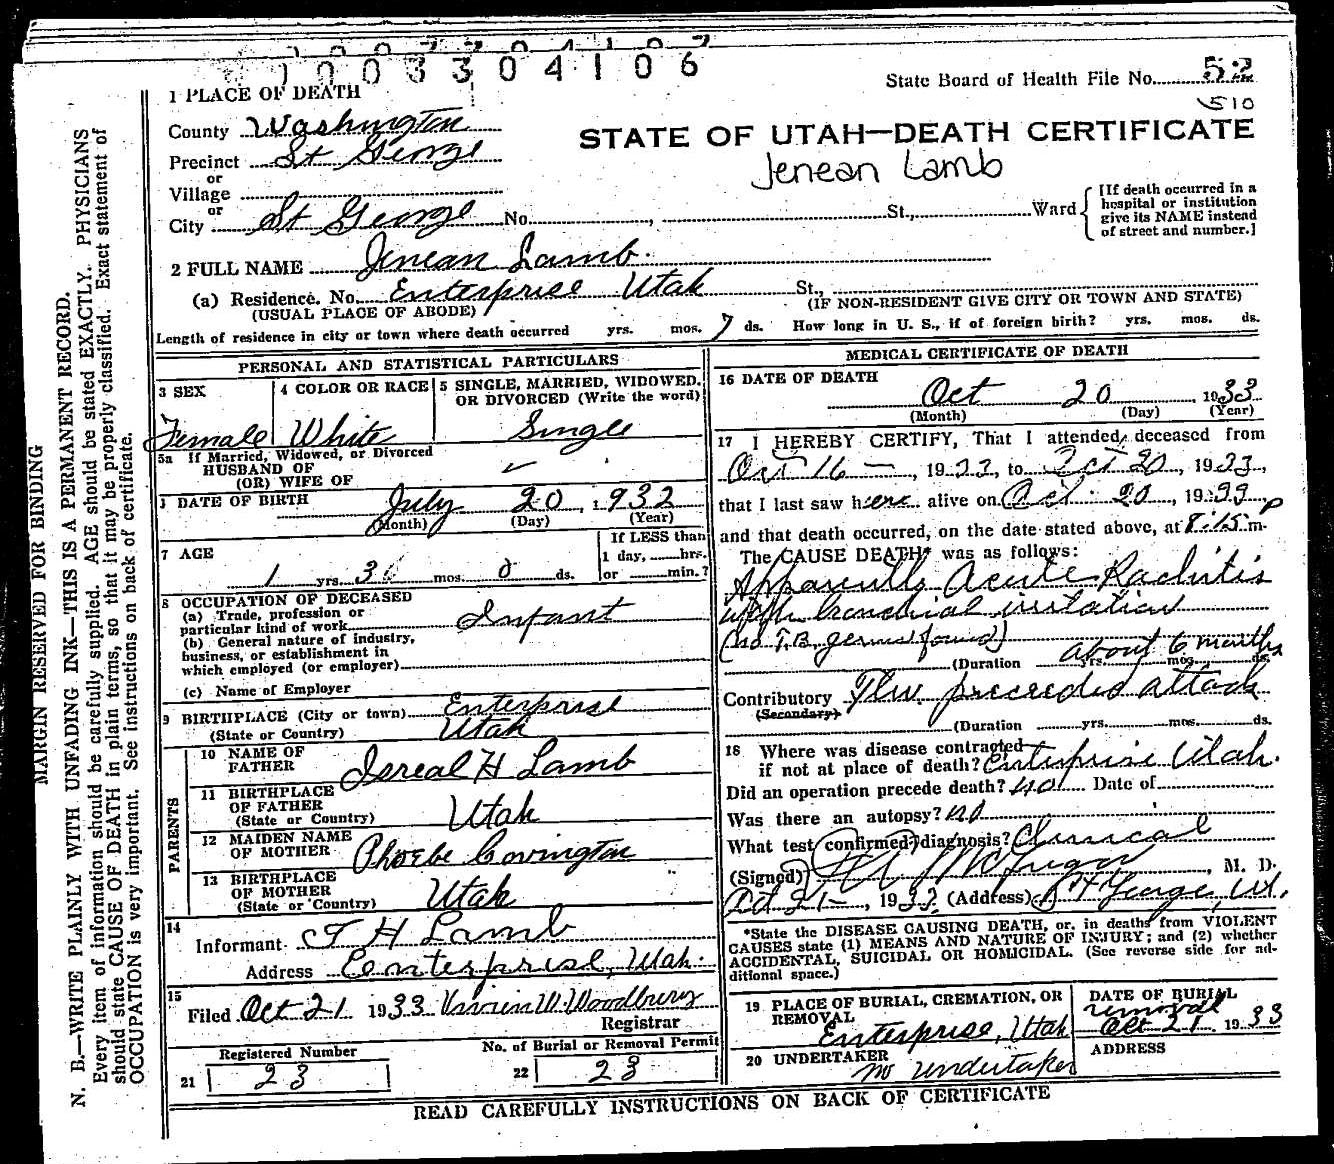 1003304106
State Board of Health File No. 52
510
1 PLACE OF DEATH
County Washington
STATE OF UTAH—DEATH CERTIFICATE
Precinct St George
Jenean Lamb
or
Village
or
City St George No. , St., Ward
[If death occurred in a
hospital or institution
give its NAME instead
of street and number.]
2 FULL NAME Jenean Lamb.
(a) Residence. No. Enterprise Utah St.,
(USUAL PLACE OF ABODE) (IF NON-RESIDENT GIVE CITY OR TOWN AND STATE)
Length of residence in city or town where death occurred yrs. mos. 7 ds. How long in U. S., if of foreign birth? yrs. mos. ds.
PERSONAL AND STATISTICAL PARTICULARS
3 SEX
Female
4 COLOR OR RACE
White
5 SINGLE, MARRIED, WIDOWED,
OR DIVORCED (Write the word)
Single
5a If Married, Widowed, or Divorced
HUSBAND OF
(OR) WIFE OF
DATE OF BIRTH July 20, 1932
(Month) (Day) (Year)
7 AGE
1 yrs. 3 mos. 0 ds.
If LESS than
1 day, hrs.
or min.?
8 OCCUPATION OF DECEASED
(a) Trade, profession or
particular kind of work Infant
(b) General nature of industry,
business, or establishment in
which employed (or employer)
(c) Name of Employer
9 BIRTHPLACE (City or town) Enterprise
(State or Country) Utah
PARENTS
10 NAME OF
FATHER Isreal H Lamb
11 BIRTHPLACE
OF FATHER
(State or Country) Utah
12 MAIDEN NAME
OF MOTHER Phoebe Covington
13 BIRTHPLACE
OF MOTHER
(State or Country) Utah
14
Informant I H Lamb
Address Enterprise, Utah.
15
Filed Oct 21 1933 Vivien W. Woodbury
Registrar
Registered Number
21 23
No. of Burial or Removal Permit
22 23
MEDICAL CERTIFICATE OF DEATH
16 DATE OF DEATH
Oct 20, 1933
(Month) (Day) (Year)
17 I HEREBY CERTIFY, That I attended deceased from
Oct 16—, 1933, to Oct 20, 1933,
that I last saw her alive on Oct. 20, 1933,
and that death occurred, on the date stated above, at 8:15 P m.
The CAUSE DEATH* was as follows:
Apparently Acute Rachitis
with bronchial irritation
(no T.B. germs found)
(Duration about 6 months yrs. mos. ds.
Contributory Flu preceeded attack
(Secondary)
(Duration yrs. mos. ds.
18 Where was disease contracted
if not at place of death? Enterprise Utah.
Did an operation precede death? no Date of
Was there an autopsy? no
What test confirmed diagnosis? Clinical
(Signed) McGregor, M. D.
Oct 21—, 1933. (Address) St George, Ut.
*State the DISEASE CAUSING DEATH, or, in deaths from VIOLENT
CAUSES state (1) MEANS AND NATURE OF INJURY; and (2) whether
ACCIDENTAL, SUICIDAL OR HOMICIDAL. (See reverse side for ad-
ditional space.)
19 PLACE OF BURIAL, CREMATION, OR
REMOVAL
Enterprise, Utah
DATE OF BURIAL
removal
Oct 21, 1933
20 UNDERTAKER
no undertaker
ADDRESS
READ CAREFULLY INSTRUCTIONS ON BACK OF CERTIFICATE
MARGIN RESERVED FOR BINDING
N. B.—WRITE PLAINLY WITH UNFADING INK—THIS IS A PERMANENT RECORD.
Every item of information should be carefully supplied. AGE should be stated EXACTLY. PHYSICIANS
should state CAUSE OF DEATH in plain terms, so that it may be properly classified. Exact statement of
OCCUPATION is very important. See instructions on back of certificate.